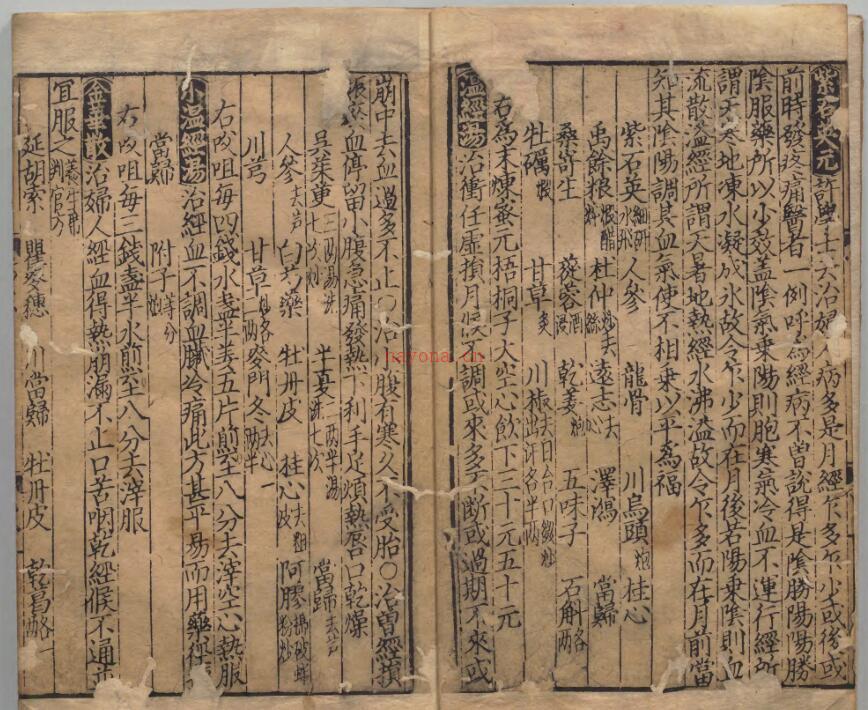 紫石英元許學士云治婦人病多是月經乍多乍少或後或
前時發疼痛醫者一例呼為經病不曾說得是陰勝陽陽勝
陰服藥所以少效蓋陰氣乗陽則胞寒氣冷血不運行經所
謂天寒地凍水凝成氷故令乍少而在月後若陽乗陰則血
流散溢經所謂天暑地熱經水沸溢故令乍多而在月前當
知其陰陽調其血氣使不相乗以平為福
紫石英細研水飛 人參 龍骨 川烏頭炮 桂心
禹餘粮 杜仲 遠志去心 澤瀉 當歸
桑寄生 蓯蓉酒浸 乾姜炮 五味子 石斛各
牡蠣煅 甘草炙 川椒去目合口各半兩
右為末煉蜜元梧桐子大空心飲下三十元五十元
溫經湯治衝任虛損月候不調或來多不斷或過期不來或
崩中去血過多不止○治小腹有寒久不受胎○治曾經損
血停留小腹急痛發熱下利手足煩熱唇口乾燥
吳茱萸三兩湯洗七次 半夏二兩半湯洗七次 當歸去芦
人參去芦 白芍藥 牡丹皮 桂心去粗皮 阿膠
川芎 甘草各二兩 麥門冬去心
右㕮咀每四錢水盞半姜五片煎至八分去滓空心熱服
小溫經湯治經血不調血臟冷痛此方甚平易而用藥徑
當歸 附子炮等分
右㕮咀每三錢盞半水煎至八分去滓服
金華散治婦人經血得熱崩漏不止口苦咽乾經候不通並
宜服之
延胡索 瞿麥穗 川當歸 牡丹皮 乾葛各一
nayona.cn